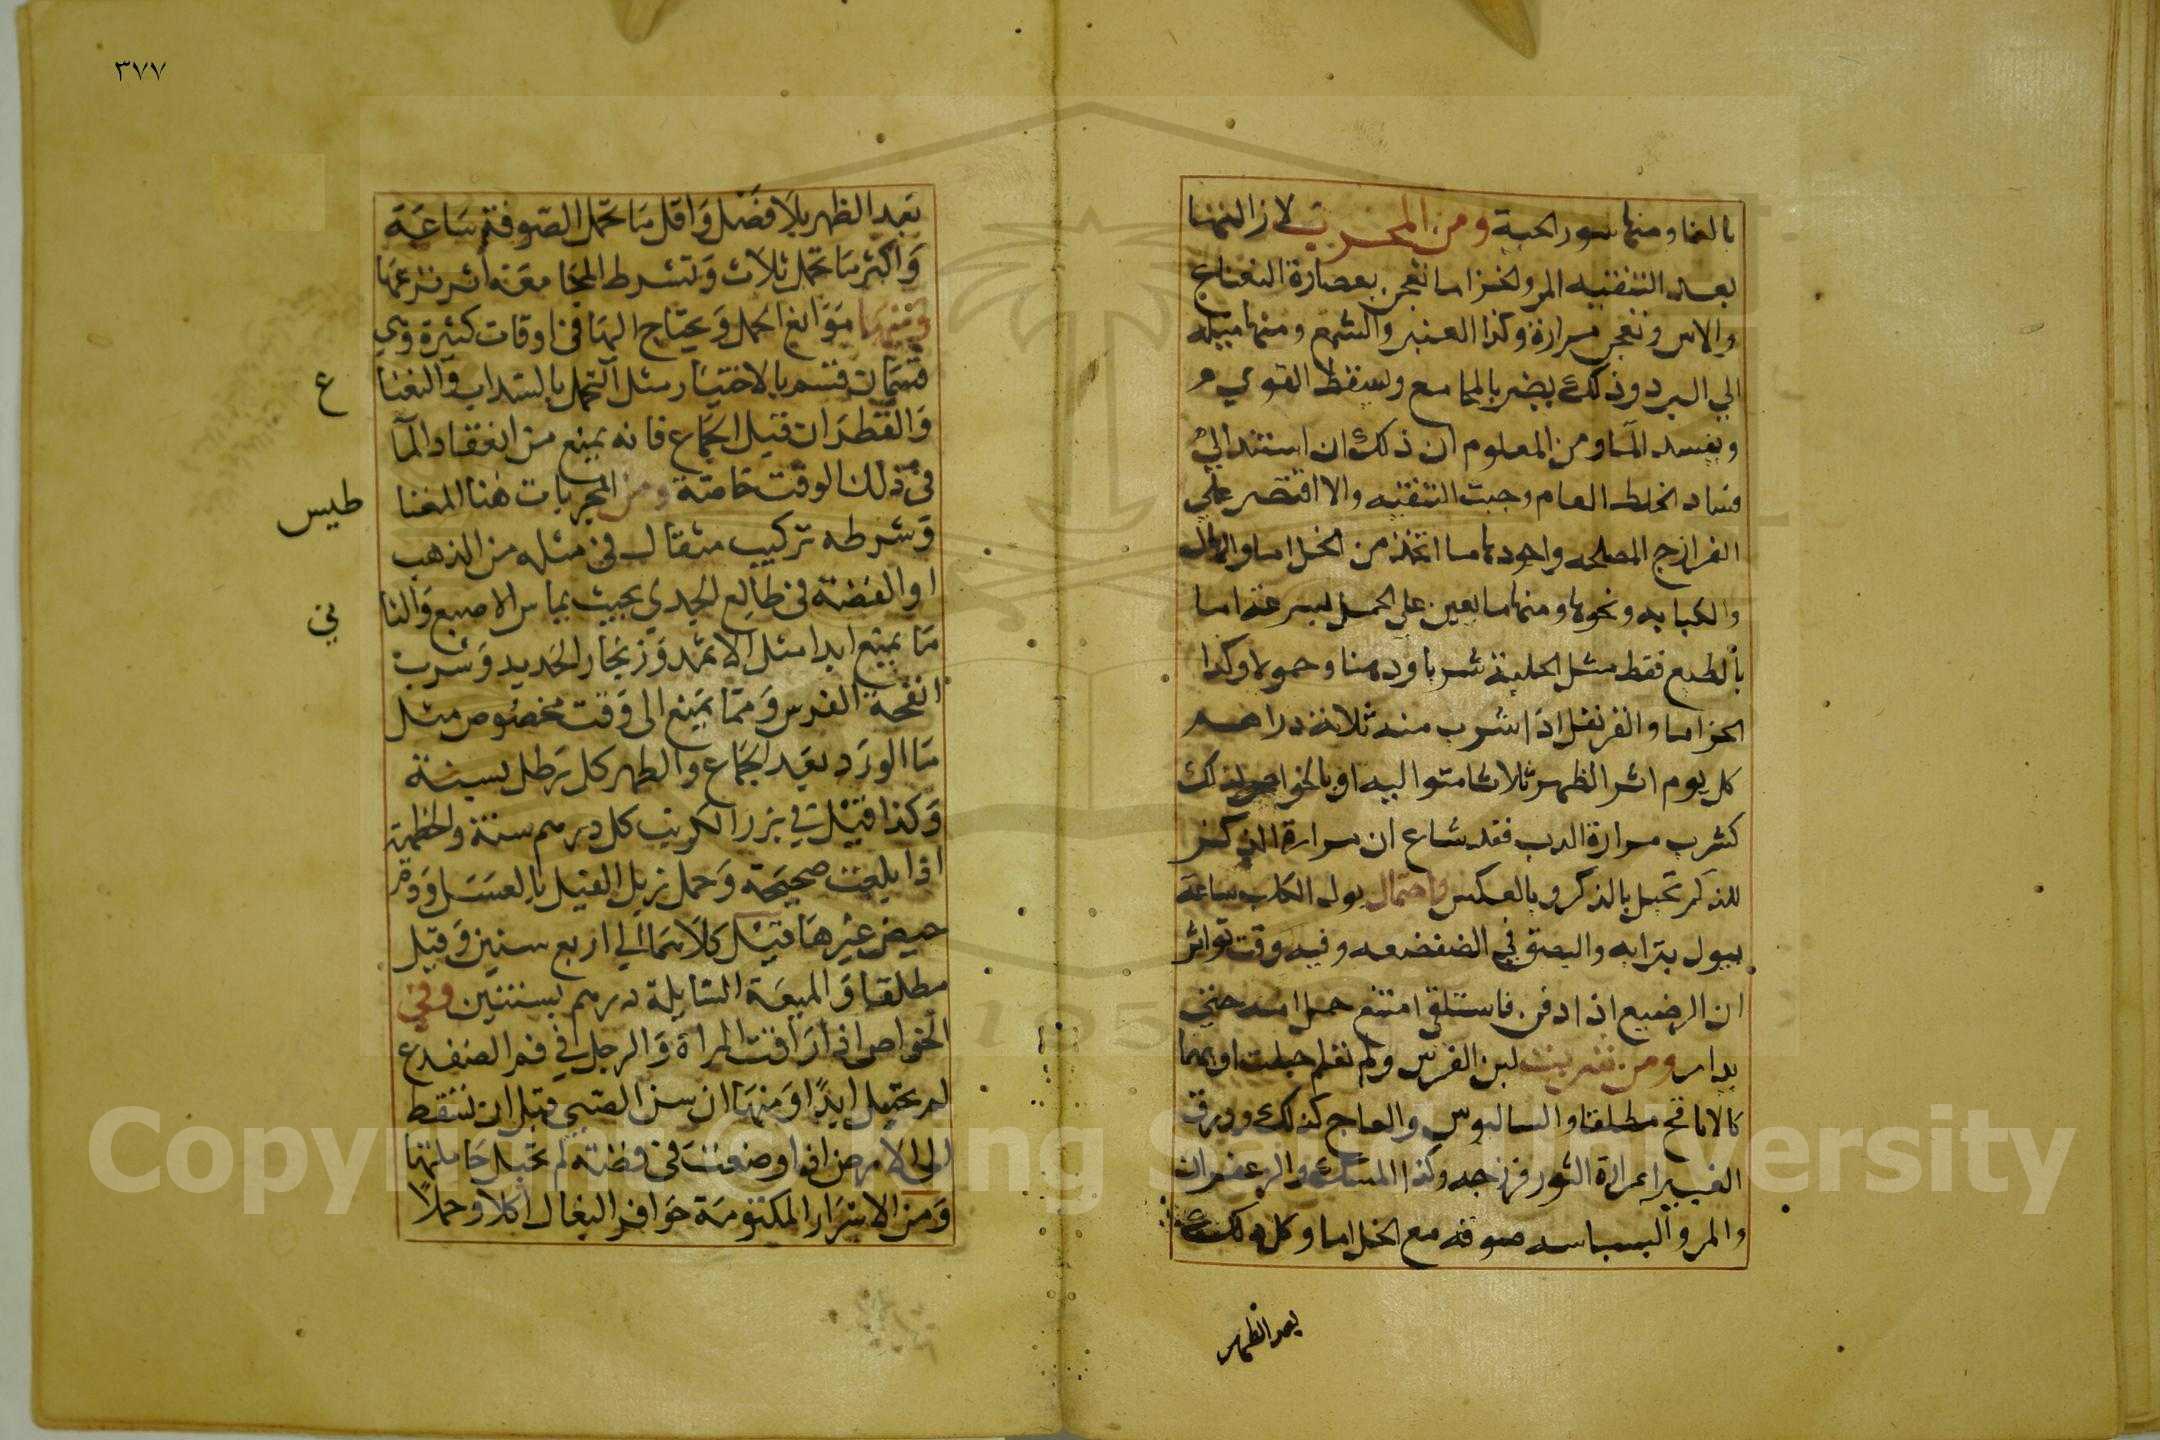 بالغا ومنها سور الحية ومن المجرب
بعد التنقيه المر والخزاما تعجن بعصارة النعناع
والاس وتعجن مرارة وكذا العنبر والشمع ومنها ميله
الي البرد وذلك يضر بالجامع ويسقط القوي
ويفسد الما ومن المعلوم ان ذلك ان استند الي
فساد الخلط العام وجبت التنقيه والا اقتصر علي
الفرازج المصلحه واجودها ما اتخذ من الخزاما
والكبابه ونحوها ومنها ما يعين علي الحمل بسرعة اما
بالطبع فقط مثل الحلبة شربا ودهنا وحمولا وكذا
الخزاما والقرنفل اذا شرب منه ثلاثة دراهم
كل يوم اثر الظهر ثلاثا متواليه او بالخواص
كشرب مرارة الدب فقد شاع ان مرارة الذكر
للذكر تحبل بالذكر وبالعكس واحتمال بول الكلاب ساعة
يبول بترابه والبصق في الضفضعه وفيه وقت تواتر
ان الرضيع اذا دفن فاستلقي امتنع حمل امه حتي
يدار ومن شربت لبن الفرس ولم تعلم حبلت او بهما
كالانافح مطلقا والسالبوس والعاج كذلك
بمرارة الثور فرزجه وكذا المسك والزعفران
والمر والبسباسه صوفه مع الخزاما وكل ذلك
بعد الظهر
٣٧٧
بعد الظهر بلا فصل واقل ما تحمل الصوفة ساعة
واكثر ما تحمل ثلاث وتشرط المجامعة اثر نزعها
ومنها موانع الحمل ويحتاج اليها في اوقات كثيرة وهي
قسمان قسم بالاختيار مثل التحمل بالسداب والنعنا
ع
والقطران قبل الجماع فانه يمنع من انعقاد الما
في ذلك الوقت خاصة ومن المجربات هنا المغنا
طيس
وشرطه تركيب مثقال في مثله من الذهب
او الفضة في طالع الجدي بحيث يماس الاصبع والثا
ني
ما يمنع ابدا مثل الاثمد وزنجار الحديد وشرب
انفحة الفرس ومما يمنع الى وقت مخصوص مثل
ما الورد بعيد الجماع والطهر كل رطل بسنة
وكذا قيل في بزر الكرنب كل درهم سنة والحلمة
اذا بلعت صحيحة وحمل زبل الفيل بالعسل ودم
حيض غيرها قيل كلاهما الي اربع سنين وقيل
مطلقا والميعة السايلة درهم بسنتين وفي
الخواص اذا اراقت المراة والرجل في فم الضفدع
لم يحبل ابدا ومنها ان سن الصبي قبل ان تسقط
الى الارض اذا وضعت في فضة لم تحبل حاملتها
ومن الاسرار المكتومة حوافر البغال اكلا وحملا
Copyright © King Saud University